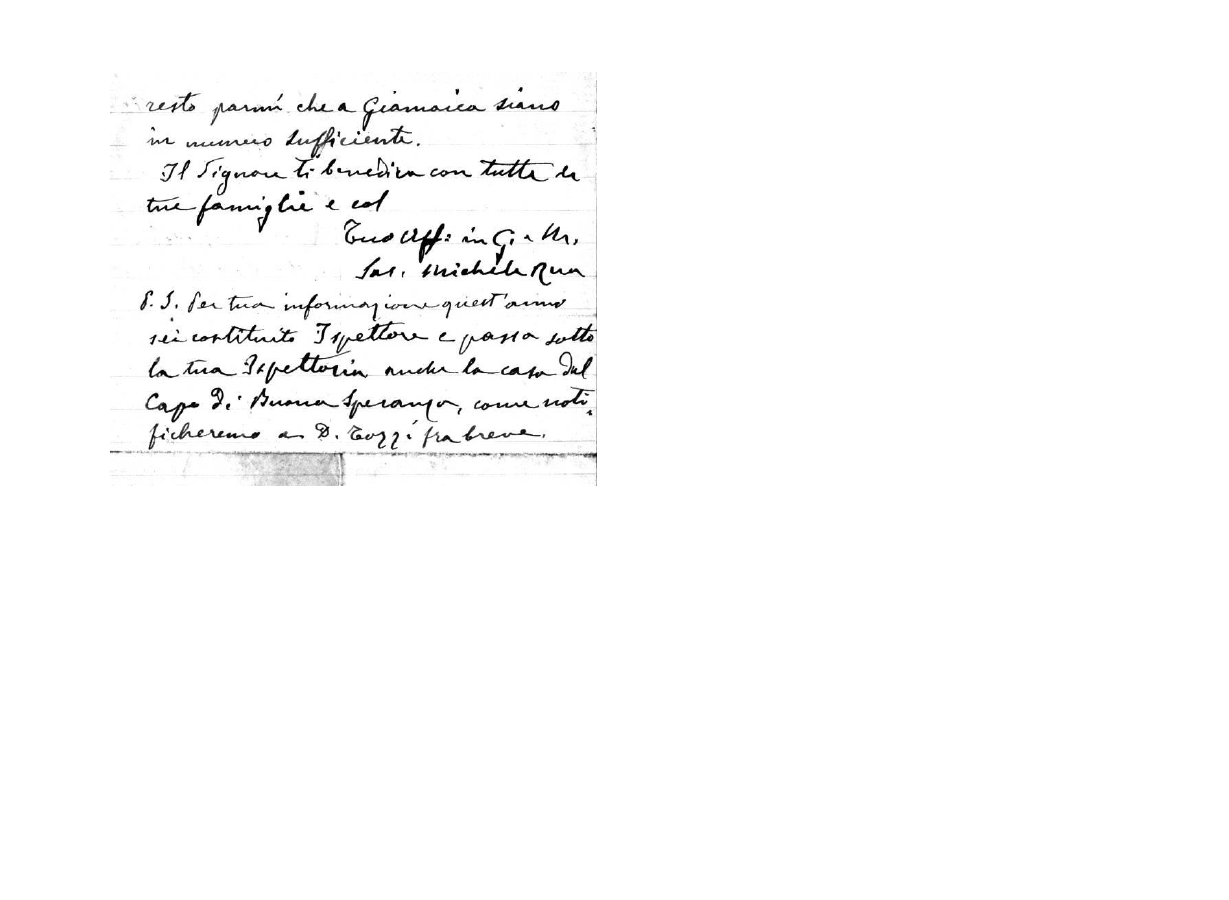 resto parmi che a Giamaica siano
in numero sufficiente.
Il Signore ti benedica con tutta la
tua famiglia e col
Tuo aff: in G. e M.
Sac. Michele Rua
P. S. Per tua informazione quest'anno
sei costituito Ispettore e passa sotto
la tua Ispettoria anche la casa del
Capo di Buona Speranza, come noti-
ficheremo a D. Tozzi fra breve.